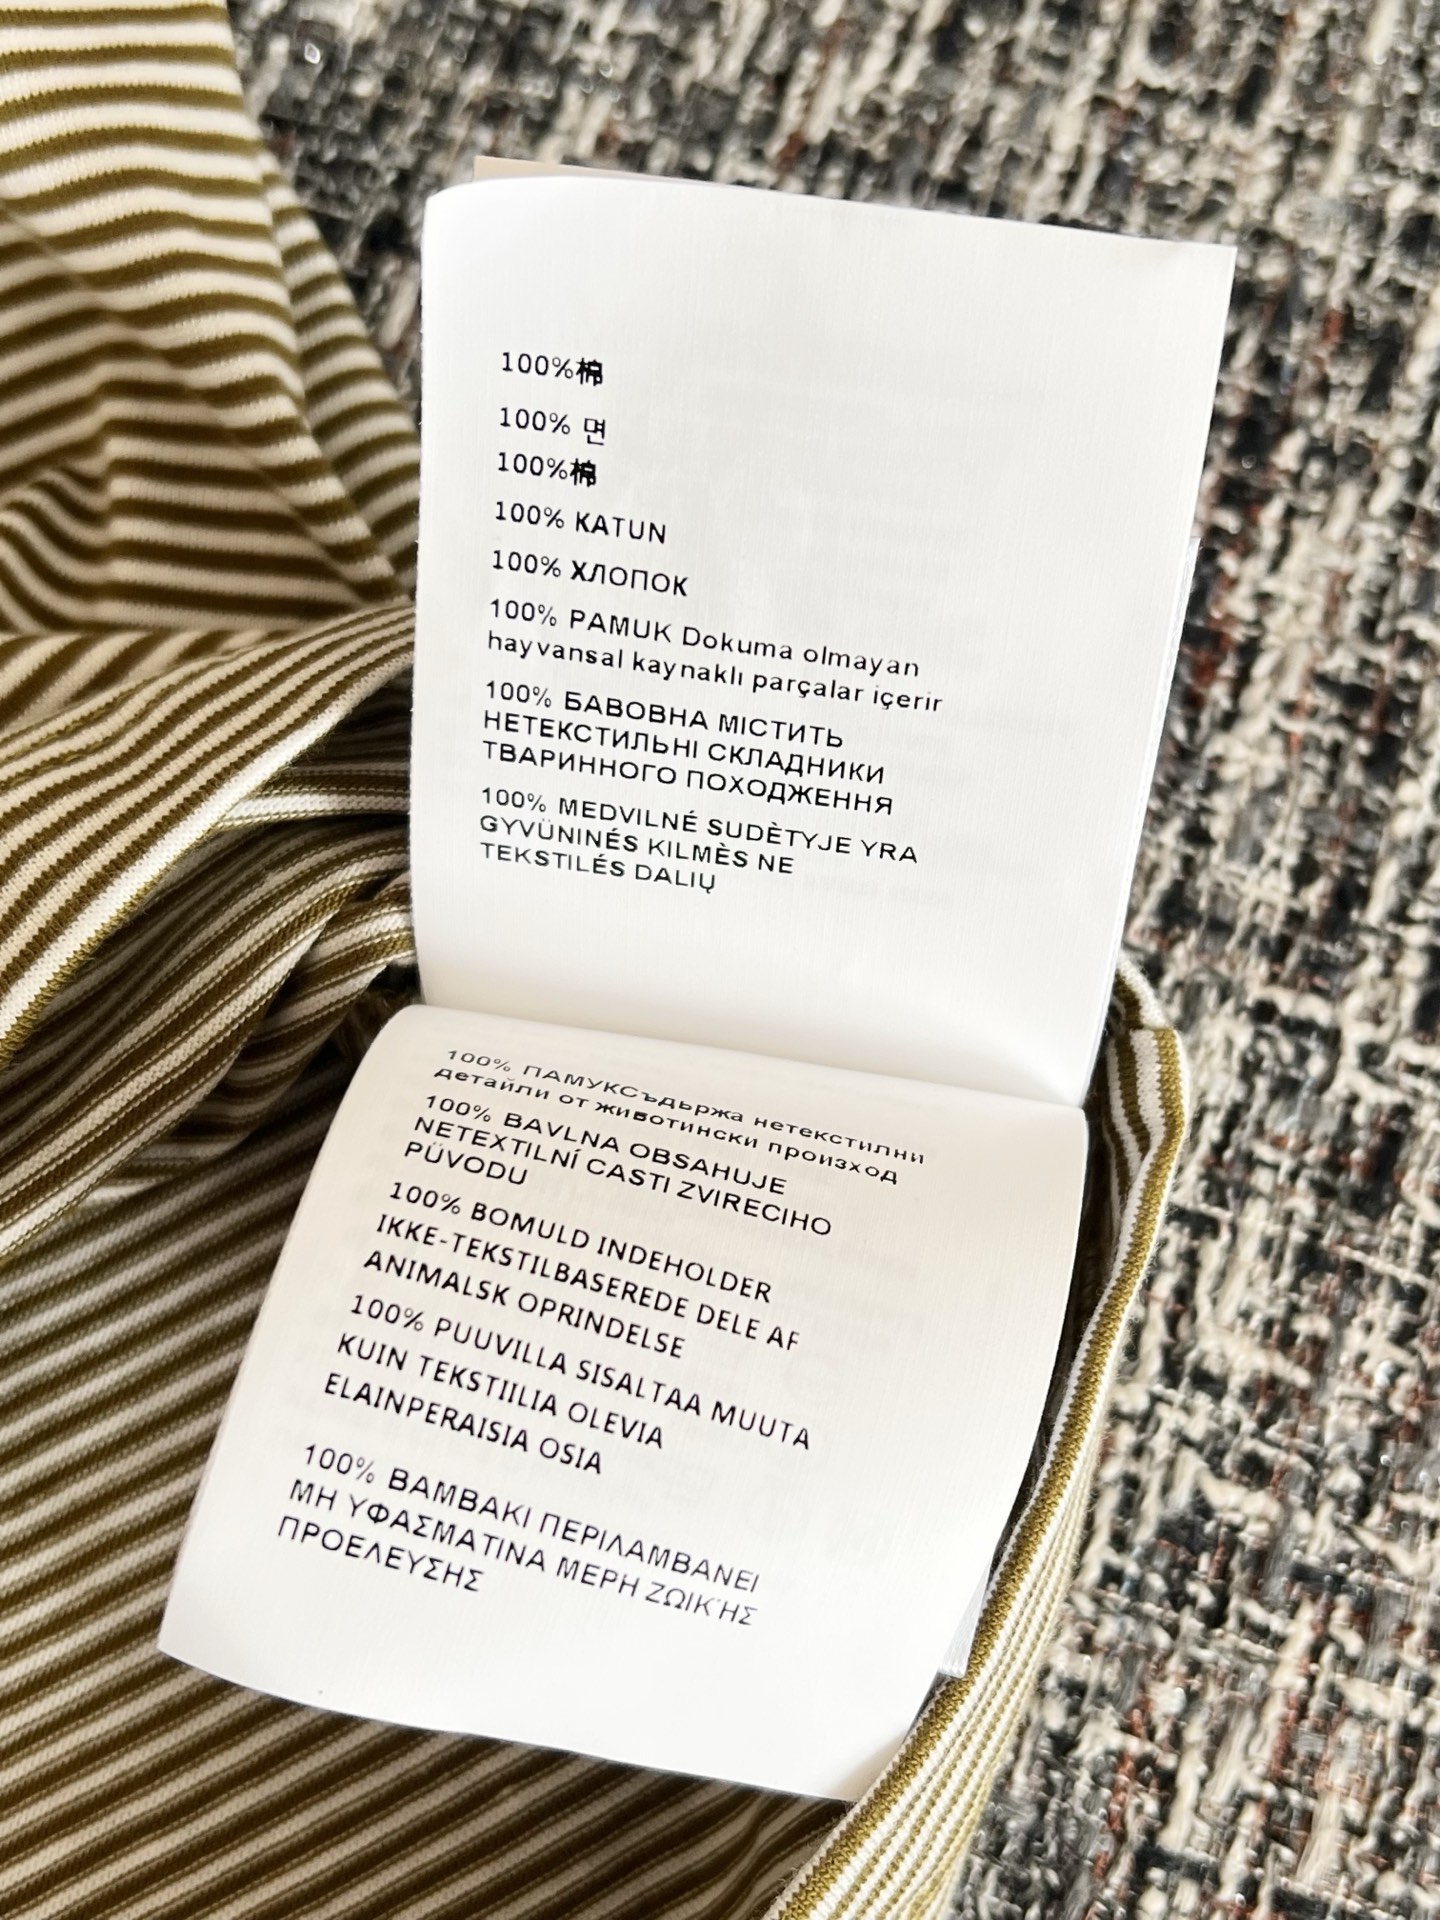 100%棉
100% 면
100%棉
100% KATUN
100% ХЛОПОК
100% PAMUK Dokuma olmayan
hayvansal kaynaklı parçalar içerir
100% БАВОВНА МІСТИТЬ
НЕТЕКСТИЛЬНІ СКЛАДНИКИ
ТВАРИННОГО ПОХОДЖЕННЯ
100% MEDVILNÉ SUDÈTYJE YRA
GYVÜNINÉS KILMÈS NE
TEKSTILÉS DALIŲ
100% ПАМУКСъдържа нетекстилни
детайли от животински произход
100% BAVLNA OBSAHUJE
NETEXTILNÍ CASTI ZVIRECIHO
PÜVODU
100% BOMULD INDEHOLDER
IKKE-TEKSTILBASEREDE DELE AF
ANIMALSK OPRINDELSE
100% PUUVILLA SISALTAA MUUTA
KUIN TEKSTIILIA OLEVIA
ELAINPERAISIA OSIA
100% ΒΑΜΒΑΚΙ ΠΕΡΙΛΑΜΒΑΝΕΙ
ΜΗ ΥΦΑΣΜΑΤΙΝΑ ΜΕΡΗ ΖΩΙΚΉΣ
ΠΡΟΕΛΕΥΣΗΣ